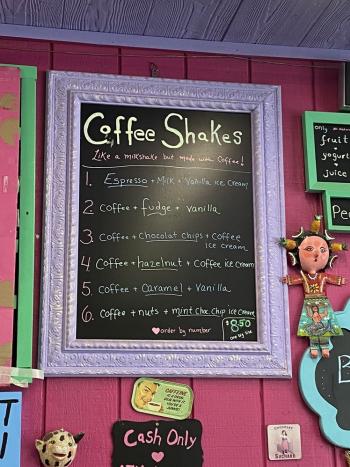 Coffee Shakes
Like a milkshake but made with Coffee!
1. Espresso + Milk + Vanilla Ice Cream
2 Coffee + fudge + vanilla
3. Coffee + chocolat chips + Coffee
ice cream
4 Coffee + hazelnut + Coffee ice cream
5. Coffee + Caramel + Vanilla
6. Coffee + nuts + mint choc. chip Ice cream
order by number
$8.50
only
fruit
yogurt
juice
Pe
CAFFEINE
Cash Only
SUCHARD